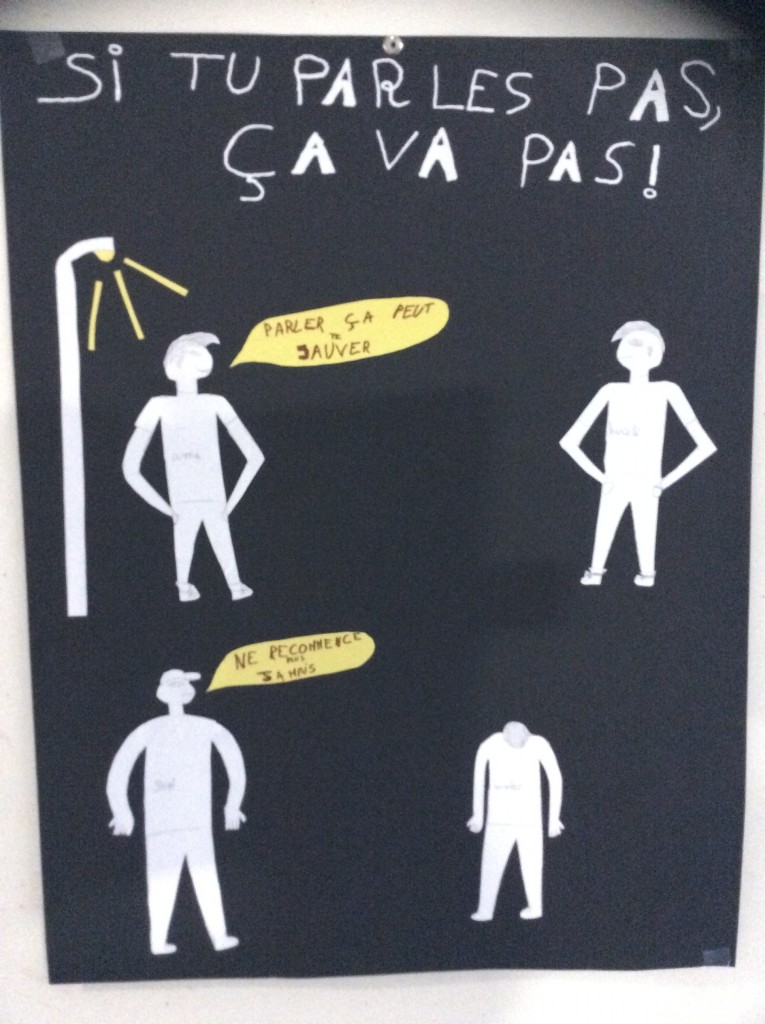 Si TU PARLES PAS,
ÇA VA PAS!
PARLER ÇA PEUT
TE
SAUVER
NE RECOMMENCE
PLUS
JAMAIS